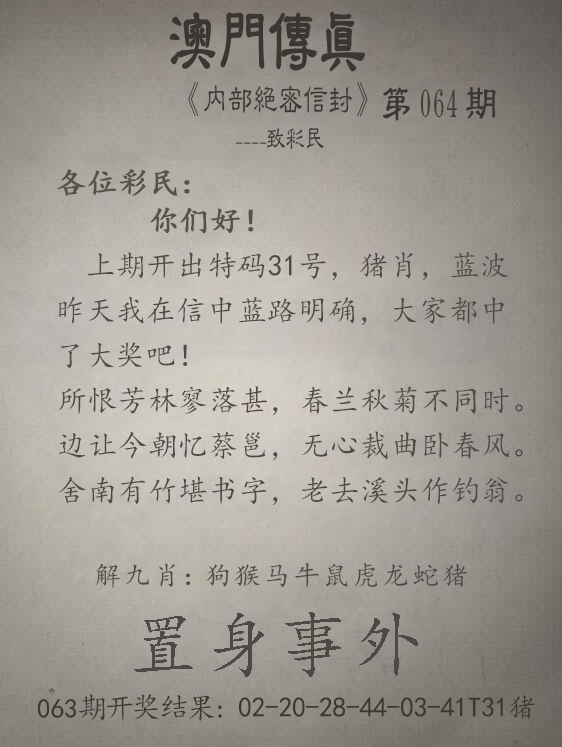 澳門傳眞
《内部絕密信封》第064期
----致彩民
各位彩民：
你们好！
上期开出特码31号，猪肖，蓝波
昨天我在信中蓝路明确，大家都中
了大奖吧！
所恨芳林寥落甚，春兰秋菊不同时。
边让今朝忆蔡邕，无心裁曲卧春风。
舍南有竹堪书字，老去溪头作钓翁。
解九肖：狗猴马牛鼠虎龙蛇猪
置身事外
063期开奖结果：02-20-28-44-03-41T31猪